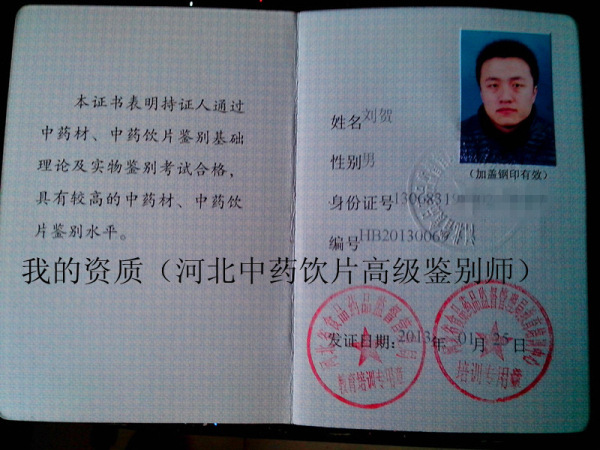 本证书表明持证人通过
中药材、中药饮片鉴别基础
理论及实物鉴别考试合格,
具有较高的中药材、中药饮
片鉴别水平。
姓名刘贺
性别男
(加盖钢印有效)
身份证号1306831
编号HB2013006
我的资质(河北中药饮片高级鉴别师)
发证日期:2013年01月25日
河北省食品药品监督管理局
教育培训专用章
培训专用章